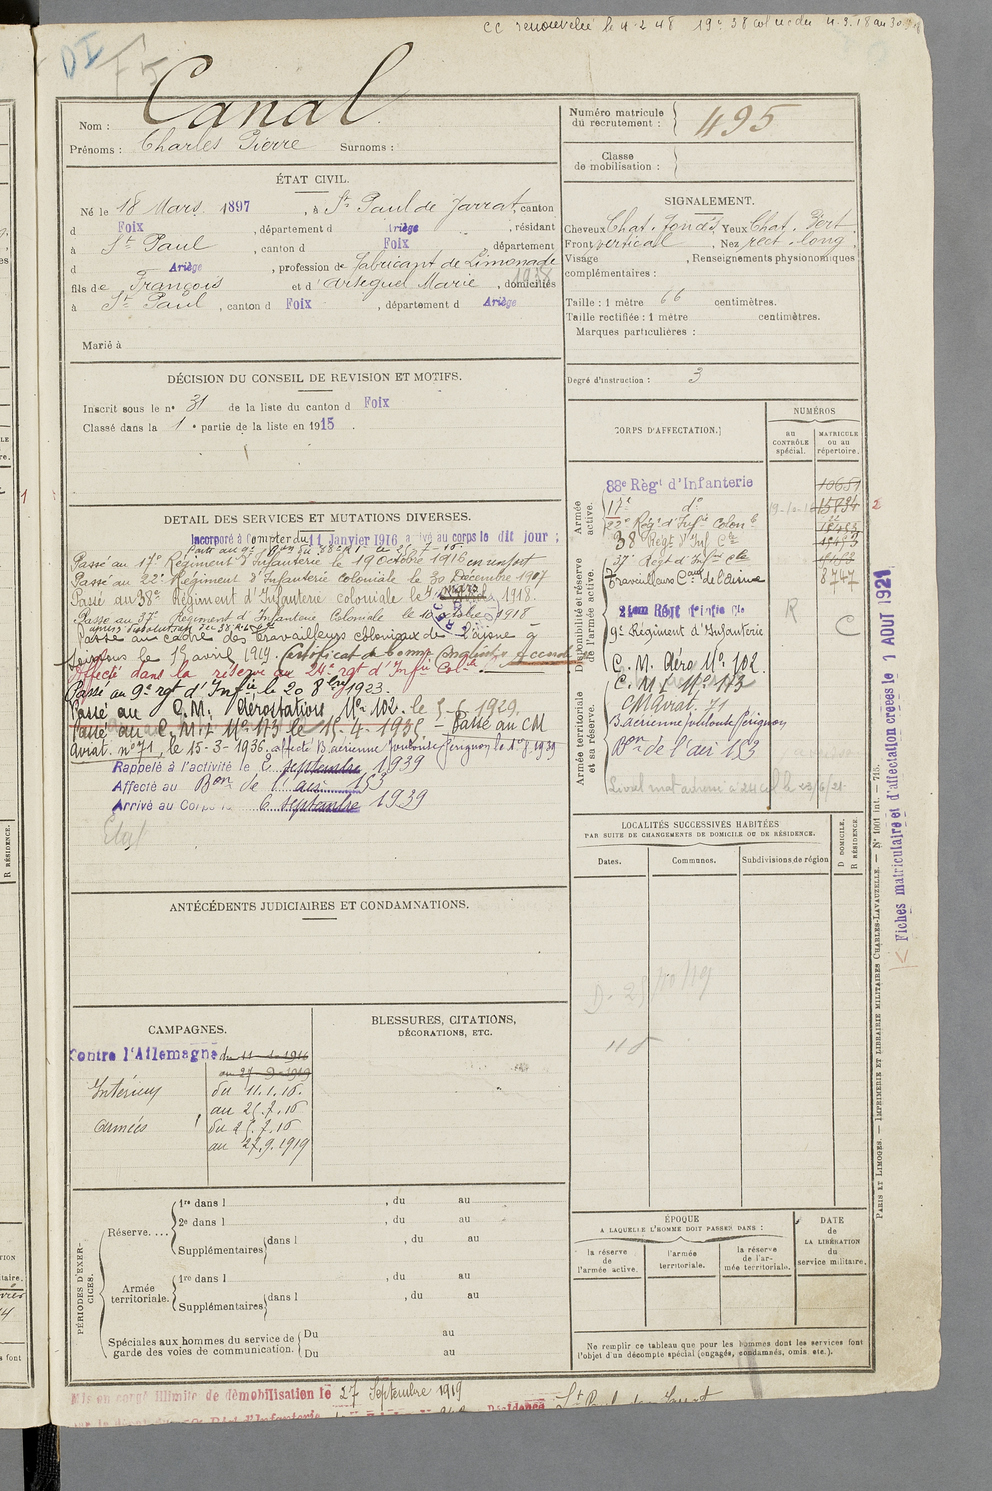 cc renouvelée le 4-2-48
DI
F5
Nom : Canal
Prénoms : Charles Pierre Surnoms :
ÉTAT CIVIL.
Né le 18 Mars 1897, à St Paul de Jarrat, canton
d Foix, département d Ariège, résidant
à St Paul, canton d Foix, département
d Ariège, profession de fabricant de Limonade
1938
fils de François et d'Arseguel Marie, domiciliés
à St Paul, canton d Foix, département d Ariège
Marié à
DÉCISION DU CONSEIL DE REVISION ET MOTIFS.
Inscrit sous le n° 31 de la liste du canton d Foix
Classé dans la 1e partie de la liste en 1915.
DÉTAIL DES SERVICES ET MUTATIONS DIVERSES.
Incorporé à compter du 11 Janvier 1916, arrivé au corps le dit jour ;
Passé au 17e Régiment d'Infanterie le 19 octobre 1916 en renfort
Passé au 22e Régiment d'Infanterie coloniale le 30 Décembre 1917
Passé au 38e Régiment d'Infanterie coloniale le 4 mars 1918.
Passé au 37e Régiment d'Infanterie Coloniale le 10 octobre 1918
après dissolution du 38e
Passé au cadre des travailleurs coloniaux de l'aisne à
Soissons le 15 avril 1919.
Affecté dans la réserve au 24e rgt d'Infie Colle
Passé au 9e rgt d'Infie le 20 8bre 1923.
Passé au C.M. Aérostation N° 102. le 5-6-1929.
Passé au C.M.A N° 113 le 15-4-1935 – Passé au CM
Aviat. n° 71, le 15-3-1936. affecté B. aérienne Toulouse Pérignon le 1er 8 1939
Rappelé à l'activité le 2 septembre 1939
Affecté au Bon de l'air 153
Arrivé au Corps le 6 septembre 1939
Etat
ANTÉCÉDENTS JUDICIAIRES ET CONDAMNATIONS.
CAMPAGNES.
Contre l'Allemagne du 11-1-1916
au 27-9-1919
Intérieur du 11.1.16.
au 25.7.16
Armées du 25.7.16
au 27.9.1919
BLESSURES, CITATIONS,
DÉCORATIONS, ETC.
PÉRIODES D'EXERCICES.
Réserve....
1re dans l , du au
2e dans l , du au
Supplémentaires dans l , du au
Armée territoriale.
1re dans l , du au
Supplémentaires dans l , du au
Spéciales aux hommes du service de garde des voies de communication.
Du au
Du au
Mis en congé illimité de démobilisation le 27 Septembre 1919
Numéro matricule du recrutement : 495
Classe de mobilisation :
SIGNALEMENT.
Cheveux Chat. foncés Yeux Chat. vert
Front vertical, Nez rect. long
Visage , Renseignements physionomiques
complémentaires :
Taille : 1 mètre 66 centimètres.
Taille rectifiée : 1 mètre centimètres.
Marques particulières :
Degré d'instruction : 3
CORPS D'AFFECTATION.
NUMÉROS
au CONTRÔLE spécial.
MATRICULE ou au répertoire.
Armée active.
88e Régt d'Infanterie 10651
17e do 15834
2
22e Régt d'Infie Colonle
38 Régt d'Inf Cle
37e Régt d'Infie cle
Travailleurs Caux de l'aisne 8747
Disponibilité et réserve de l'armée active.
24em Régt d'Infie Cle
R
9e Régiment d'Infanterie
C
C.M. Aéro N° 102
C.M.A N° 113
Armée territoriale et sa réserve.
CM Aviat. 71
B. aérienne Toulouse Pérignon
Bon de l'air 153
LOCALITÉS SUCCESSIVES HABITÉES
PAR SUITE DE CHANGEMENTS DE DOMICILE OU DE RÉSIDENCE.
Dates. Communes. Subdivisions de région
D DOMICILE.
R RÉSIDENCE.
D. 25/10/19
ÉPOQUE
A LAQUELLE L'HOMME DOIT PASSER DANS :
la réserve de l'armée active.
l'armée territoriale.
la réserve de l'armée territoriale.
DATE de LA LIBÉRATION du service militaire.
Ne remplir ce tableau que pour les hommes dont les services font
l'objet d'un décompte spécial (engagés, condamnés, omis etc.).
Résidence St Paul de Jarrat
Fiches matriculaire et d'affectation créées le 1 AOUT 1921
PARIS ET LIMOGES. — IMPRIMERIE ET LIBRAIRIE MILITAIRES CHARLES-LAVAUZELLE. — N° 1001 int. — 715.
R RÉSIDENCE.